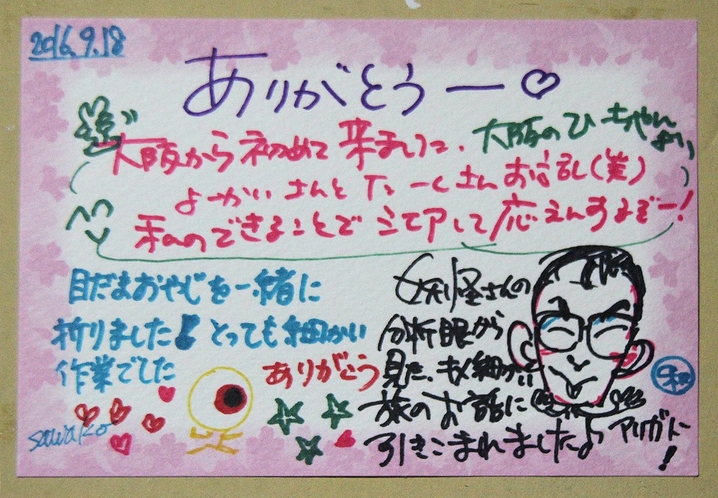 2016.9.18
ありがとうー♡
大阪から初めて来ました、大阪のひーちゃんより
よーかいさんとたーくさんお話し(笑)
私のできることでシェアして応えんするぞー!
目だまおやじを一緒に
折りました! とっても細かい
作業でした ありがとう
sawako
妖怪さんの
分析眼から
見た、きめ細かい
旅のお話に
引きこまれましたよ アリガトー!
和